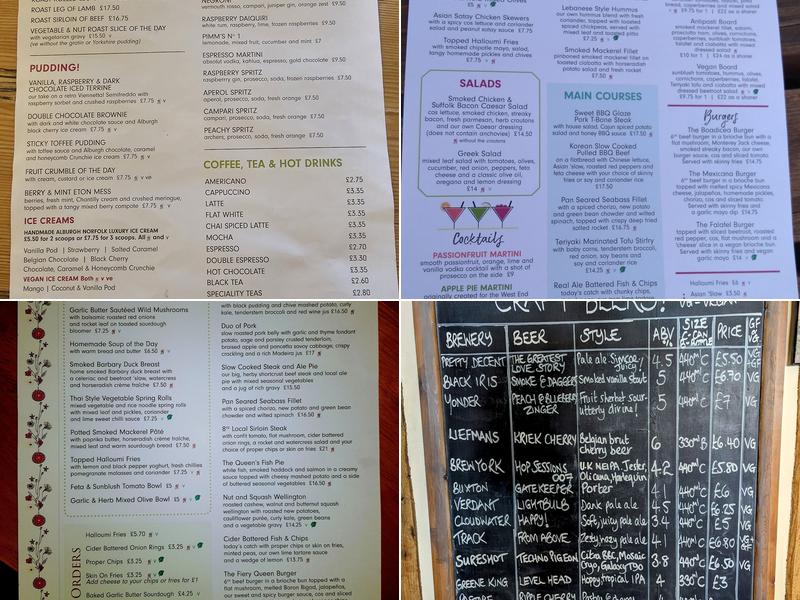 ROAST LEG OF LAMB £17.50
ROAST SIRLOIN OF BEEF £16.75
VEGETABLE & NUT ROAST SLICE OF THE DAY
with vegetarian gravy £15.50 v
(ve without the gratin or Yorkshire pudding)
PUDDING!
VANILLA, RASPBERRY & DARK
CHOCOLATE ICED TERRINE
our take on a retro Viennetta! Semifreddo with
raspberry sorbet and crushed raspberries £7.75 v
DOUBLE CHOCOLATE BROWNIE
with dark and white chocolate sauce and Alburgh
black cherry ice cream £7.75 v
STICKY TOFFEE PUDDING
with toffee sauce and Alburgh chocolate, caramel
and honeycomb Crunchie ice cream £7.75 v
FRUIT CRUMBLE OF THE DAY
with cream, custard or ice cream £7.75 v ve
BERRY & MINT ETON MESS
berries, fresh mint, Chantilly cream and crushed meringue,
topped with a tangy mixed berry compote £7.75 v
ICE CREAMS
HANDMADE ALBURGH NORFOLK LUXURY ICE CREAM
£5.50 for 2 scoops or £7.75 for 3 scoops. All and v
Vanilla Pod | Strawberry | Salted Caramel
Belgian Chocolate | Black Cherry
Chocolate, Caramel & Honeycomb Crunchie
VEGAN ICE CREAM Both v ve
Mango | Coconut & Vanilla Pod
NEGRONI
vermouth rosso, campari, juniper gin, orange zest £9.50
RASPBERRY DAIQUIRI
white rum, raspberry, lime, frozen raspberries £9.50
PIMM'S Nº 1
lemonade, mixed fruit, cucumber and mint £7
ESPRESSO MARTINI
absolut vodka, kahlua, espresso, gold chocolate £9.50
RASPBERRY SPRITZ
raspberry gin, prosecco, soda, frozen raspberries £7.50
APEROL SPRITZ
aperol, prosecco, soda, fresh orange £7.50
CAMPARI SPRITZ
campari, prosecco, soda, fresh orange £7.50
PEACHY SPRITZ
archers, prosecco, soda, fresh orange £7.50
COFFEE, TEA & HOT DRINKS
AMERICANO £2.75
CAPPUCCINO £3.35
LATTE £3.35
FLAT WHITE £3.35
CHAI SPICED LATTE £3.35
MOCHA £3.35
ESPRESSO £2.70
DOUBLE ESPRESSO £3.30
HOT CHOCOLATE £3.35
BLACK TEA £2.60
SPECIALITY TEAS £2.80
£5 v
Asian Satay Chicken Skewers
with a spicy cos lettuce and coriander
salad and peanut satay sauce £7.75
Topped Halloumi Fries
with smoked chipotle mayo, salad,
tangy homemade pickles and chives
£7.75 v
SALADS
Smoked Chicken &
Suffolk Bacon Caesar Salad
cos lettuce, smoked chicken, streaky
bacon, fresh parmesan, herb croutons
and our own Caesar dressing
(does not contain anchovies) £14.50
without the croutons
Greek Salad
mixed leaf salad with tomatoes, olives,
cucumber, red onion, peppers, feta
cheese and a classic olive oil,
oregano and lemon dressing
£14 v
Cocktails
PASSIONFRUIT MARTINI
smooth passionfruit, orange, lime and
vanilla vodka cocktail with a shot of
prosecco on the side £9
APPLE PIE MARTINI
originally created for the West End
Lebanese Style Hummus
our own hummus blend with fresh
coriander, topped with
spiced chickpeas, served with
mixed leaf and toasted pitta
£7.25 v
Smoked Mackerel Fillet
poached smoked mackerel fillet on
toasted ciabatta with horseradish
potato salad and fresh rocket
£7.50
MAIN COURSES
Sweet BBQ Glaze
Pork T-Bone Steak
with house salad, Cajun spiced potato
salad and honey BBQ sauce £17.50
Korean Slow Cooked
Pulled BBQ Beef
on a flatbread with Chinese lettuce,
Asian 'slaw, roasted red peppers and
feta cheese with your choice of skinny
fries or soy and coriander rice
£17.50
Pan Seared Seabass Fillet
with a spiced chorizo, new potato
and green bean chowder and wilted
spinach, topped with crispy deep fried
salted rocket £16.75
Teriyaki Marinated Tofu Stirfry
with baby corns, tenderstem broccoli,
red onion, soy beans and
soy and coriander rice
£14.25 v
Real Ale Battered Fish & Chips
today's catch with chunky chips,
Antipasti Board
smoked mackerel fillet, salami,
prosciutto ham, olives, cornichons,
caperberries, sunblush tomatoes,
falafel and ciabatta with mixed
dressed salad
£10 for 1 | £24 as a sharer
Vegan Board
sunblush tomatoes, hummus, olives,
cornichons, caperberries, falafel,
Teriyaki Tofu and ciabatta with
mixed dressed beetroot salad v
£9.75 for 1 | £22 as a sharer
Burgers
The Boadicea Burger
6oz beef burger in a brioche bun with a
flat mushroom, Monterey Jack cheese,
smoked streaky bacon, our own
burger sauce, cos and sliced tomato
Served with skinny fries £14.75
The Mexicana Burger
6oz beef burger in a brioche bun
topped with melted spicy Mexicana
cheese, jalapeños, mixed peppers,
chorizo, cos and sliced tomato.
Served with skinny fries and
a garlic mayo dip £14.75
The Falafel Burger
topped with sliced beetroot, roasted
red pepper, cos, flat mushroom and a
'cheese' slice in a vegan brioche bun.
Served with skinny fries and vegan
garlic mayo £14 v
Halloumi Fries £6 v
Asian 'Slaw £3.50
Garlic Butter Sautéed Wild Mushrooms
with balsamic roasted red onions
and rocket leaf on toasted sourdough
bloomer £7.25 v
Homemade Soup of the Day
with warm bread and butter £6.50 v
Smoked Barbary Duck Breast
home smoked Barbary duck breast with
a celeriac and beetroot 'slaw, watercress
and horseradish crème fraîche £7.50
Thai Style Vegetable Spring Rolls
mixed vegetable and rice noodle spring rolls
with mixed leaf and pickles, coriander
and lime sweet chilli sauce £7.25 v
Potted Smoked Mackerel Pâté
with paprika butter, horseradish crème fraîche,
mixed leaf and warm sourdough bread £7.50
Topped Halloumi Fries
with lemon and black pepper yoghurt, fresh chillies
pomegranate molasses and coriander £7.75 v
Feta & Sunblush Tomato Bowl £5 v
Garlic & Herb Mixed Olive Bowl £5 v
ORDERS
Halloumi Fries £5.70 v
Cider Battered Onion Rings £3.25 v
Proper Chips £3.25 v
Skin On Fries £3.25 v
Add cheese to your chips or fries for £1
Baked Garlic Butter Sourdough £4.25 v
with black pudding and chive mashed potato, curly
kale, tenderstem broccoli and red wine jus £16.50
Duo of Pork
slow roasted pork belly with garlic and thyme fondant
potato, sage and parsley crusted tenderloin,
braised apple and pancetta savoy cabbage, crispy
crackling and a rich Madeira jus £17
Slow Cooked Steak and Ale Pie
our big, herby shortcrust beef steak and local ale
pie with mixed seasonal vegetables
and a jug of rich gravy £15.50
Pan Seared Seabass Fillet
with a spiced chorizo, new potato and green bean
chowder and wilted spinach £16.50
8oz Local Sirloin Steak
with confit tomato, flat mushroom, cider battered
onion rings, a rocket and watercress salad and your
choice of proper chips or skin on fries £21
The Queen's Fish Pie
white fish, smoked haddock and salmon in a creamy
sauce topped with cheesy mashed potato and a side
of buttered seasonal vegetables £16.50
Nut and Squash Wellington
roasted cashew, walnut and butternut squash
wellington with roasted new potatoes,
cauliflower purée, curly kale, green beans
and a vegetable gravy £14.25 v
Cider Battered Fish & Chips
today's catch with proper chips or skin on fries,
minted peas, our own lime tartare sauce
and a wedge of lemon £13.75
The Fiery Queen Burger
6oz beef burger in a brioche bun topped with a flat
mushroom, melted Baron Bigod, jalapeños,
our sweet and spicy burger sauce, cos,
CRAFT BEERS! VG=VEGAN
BREWERY BEER STYLE ABV SIZE C=CAN B=BOTTLE PRICE GF VG
PRETTY DECENT THE GREATEST LOVE STORY Pale ale, Simcoe, juicy! 4.5 440ml C £5.50 VG+GF
BLACK IRIS SMOKE & DAGGERS Smoked vanilla stout 5 440ml C £6.70 VG
YONDER PEACH & BLUEBERRY ZINGER Fruit sherbet sour- utterly divine! 5 440ml C £7 VG
LIEFMANS KRIEK CHERRY Belgian brut cherry beer 6 330ml B £6.40 VG
BREWYORK HOP SESSIONS 007 U.K NEIPA, Jester, Olicana, Harlequin 4.2 440ml C £5.80 VG
BUXTON GATEKEEPER Porter 4.1 440ml C £6 VG
VERDANT LIGHTBULB Dank pale ale 4.5 440ml C £6.25 VG
CLOUDWATER HAPPY! Soft, juicy pale ale 3.4 440ml C £5 VG
TRACK FROM ABOVE Zesty hazy pale ale 4.1 440ml C £6.80 VG+GF
SURESHOT TECHNO PIGEON Citra BBC, Mosaic Cryo, Galaxy T90 3.8 440ml C £6.50 VG
GREENE KING LEVEL HEAD Hoppy tropical IPA 4 330ml C £3